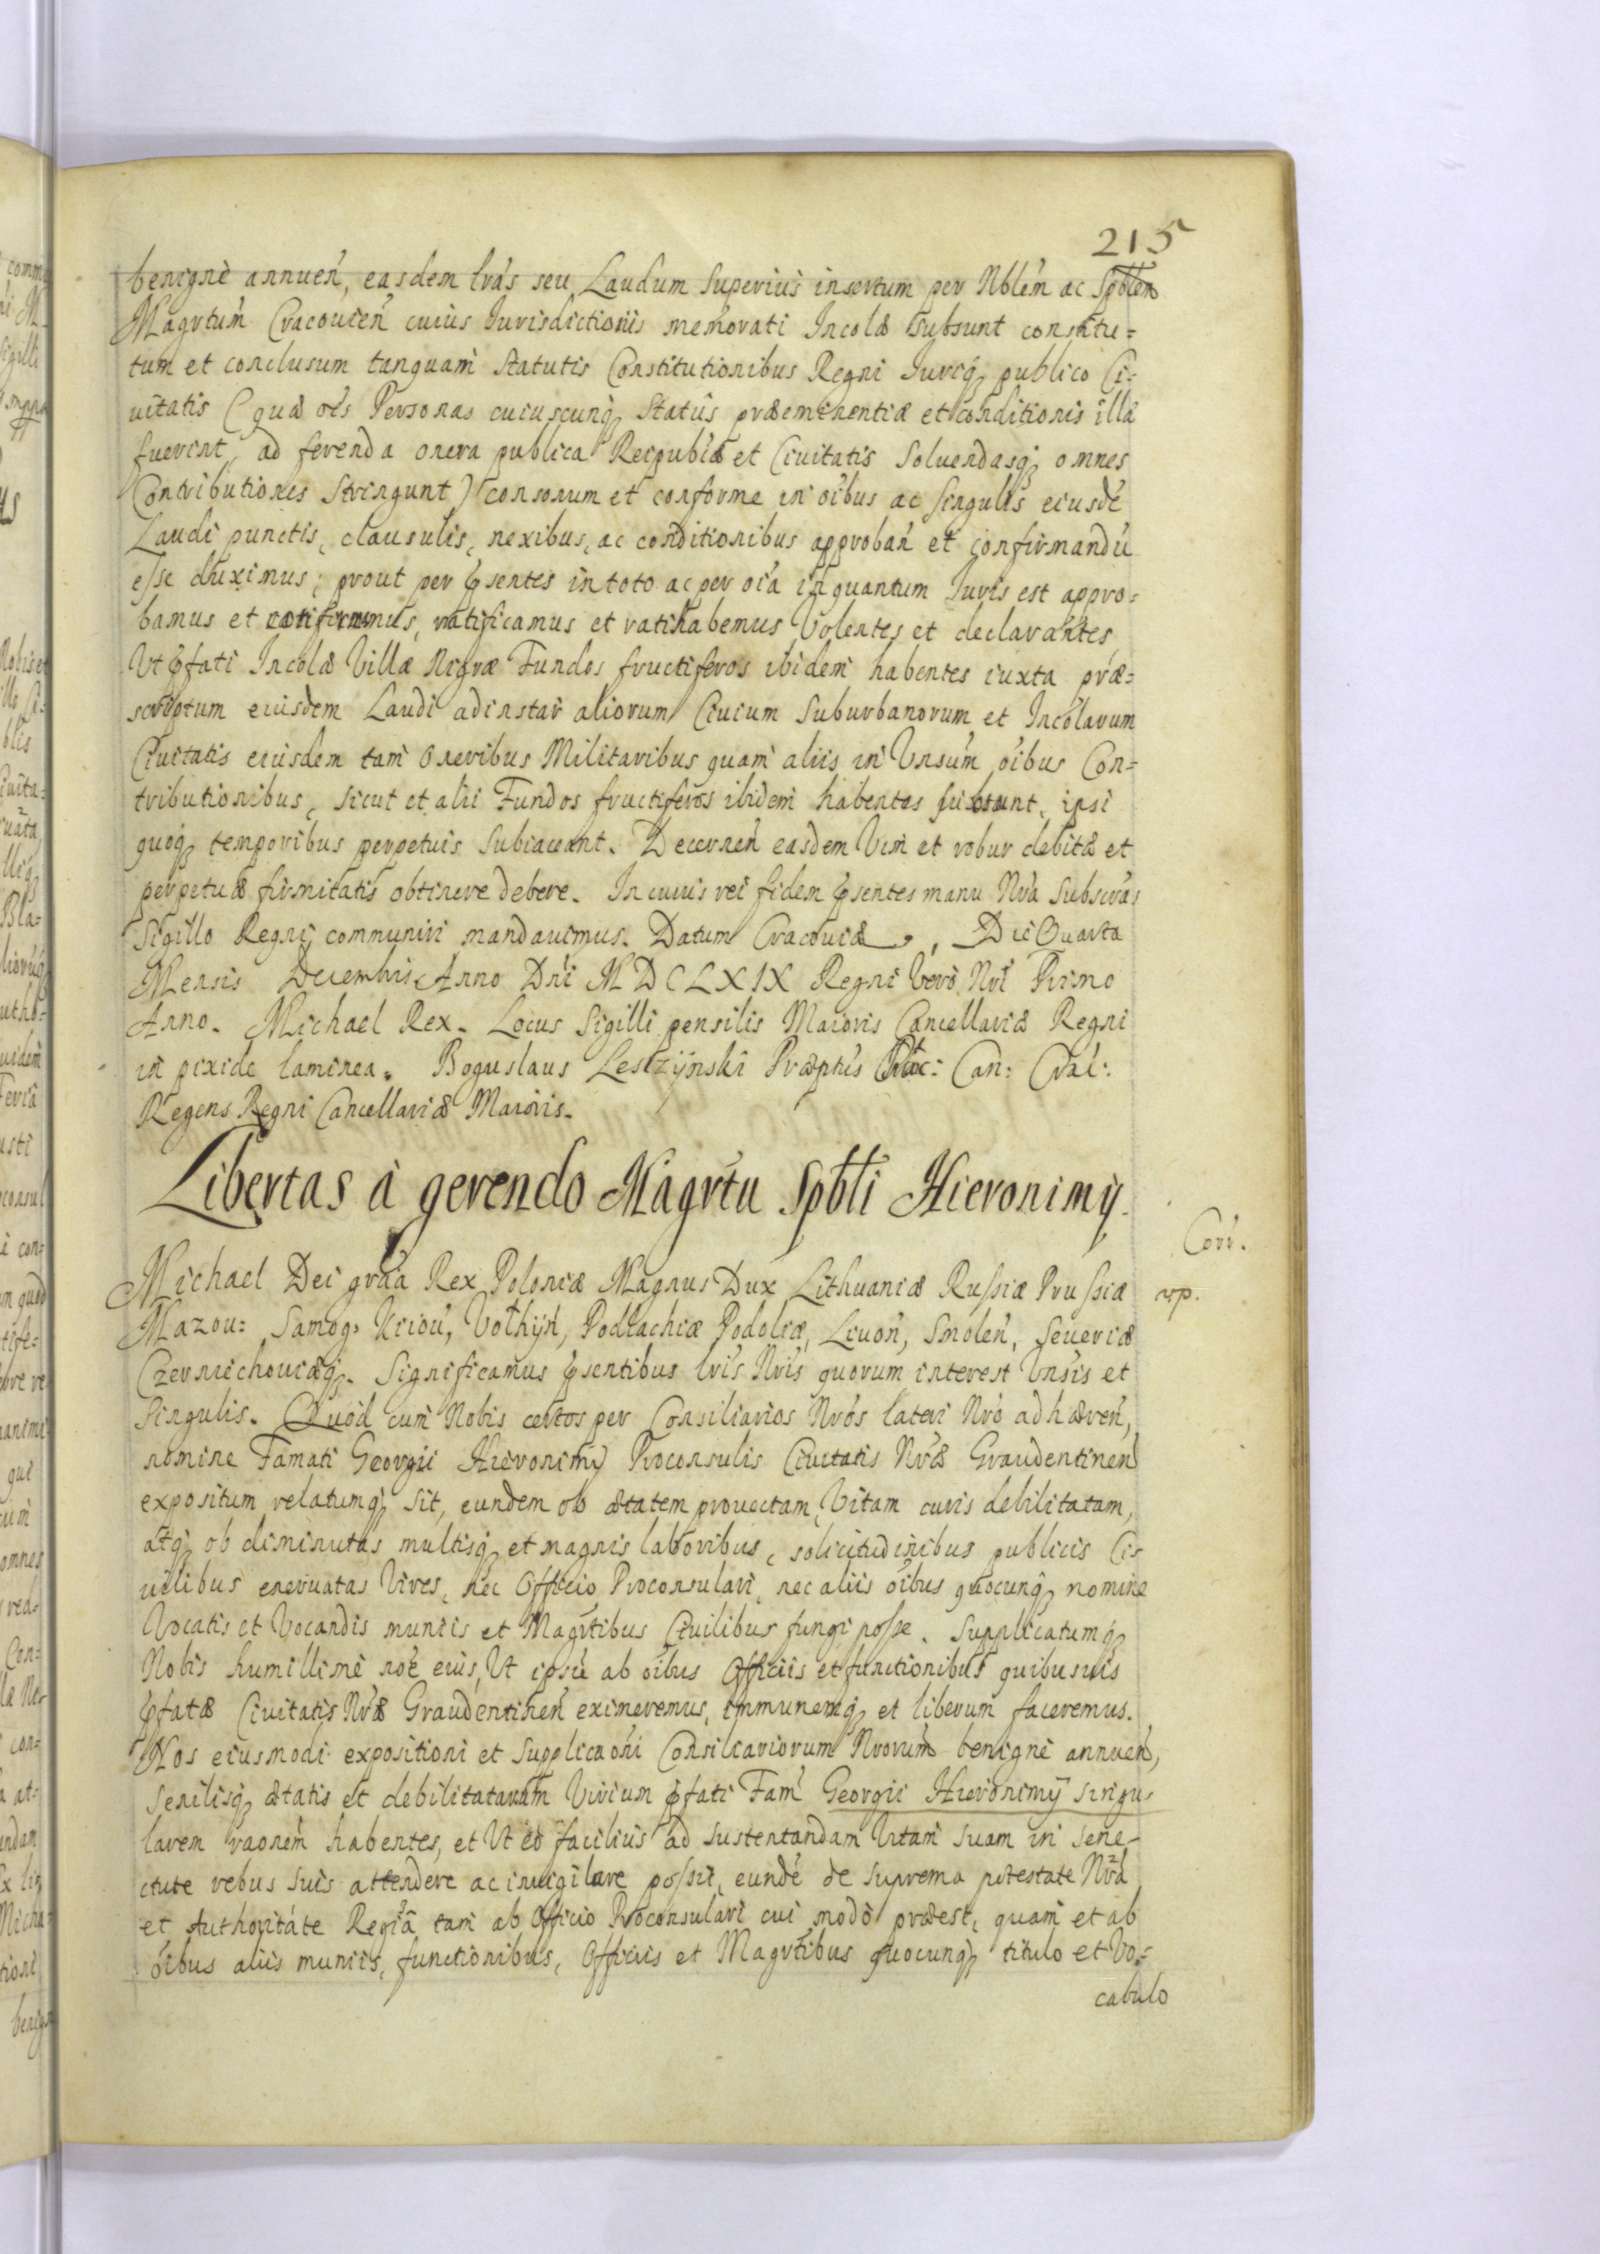 215
benignè annueñ, easdem lrás seu Laudum superius insertum per Nblém ac Spblem
Magrtum̃ Cracouieñ cuius Iurisdictionis memorati Incolæ subsunt constitu=
tum et conclusum tanquam̃ Statutis Constitutionibus Regni Iuriq̃ publico Ci=
uitatis (quæ oẽs Personas cuiuscunq̃ Status præeminentiæ et conditionis illæ
fuerint, ad ferenda onera publica Reipubĩæ et Ciuitatis Soluendasq̃ omnes
Contributiones Stringunt) consonum et conforme in oĩbus ac singulis eiusdẽ
Laudi punctis, clausulis, nexibus, ac conditionibus approbañ et confirmandũ
esse duximus; prout per p̃sentes in toto ac per oĩa in quantum Iuris est appro=
bamus et ratificamus et ratihabemus Volentes et declarantes
Ut p̃fati Incolæ Villæ Nigræ Fundos fructiferos ibidem̃ habentes iuxta præ=
scriptum eiusdem Laudi adinstar aliorum Ciuium Suburbanorum et Incolarum
Ciuitatis eiusdem tam̃ Oneribus Militaribus quam̃ aliis in Vnsum̃ oĩbus Con=
tributionibus, sicut et alii Fundos fructiferos ibidem̃ habentes subsunt, ipsi
quoq̃ temporibus perpetuis subiaceant. Decerneñ easdem Vim̃ et robur debitæ et
perpetuæ firmitatis obtinere debere. In cuius rei fidem p̃sentes manu Nrã Subscras
Sigillo Regni communiri mandauimus. Datum Cracouiæ, Die Quarta
Mensis Decembris Anno Dñi MDCLXIX Regni Vero Nri Primo
Anno. Michael Rex. Locus Sigilli pensilis Maioris Cancellariæ Regni
in pixide laminea. Boguslaus Leszzÿnski Præptus Can: Cral:
Regens Regni Cancellariæ Maioris.
Libertas à gerendo Magrtu Spbłi Hieronimÿ.
Corr.
Michael Dei grãa Rex Poloniæ Magnus Dux Lithuaniæ Russiæ Prussiæ
rp.
Mazou: Samog: Kiioũ, Volhÿñ, Podlachiæ Podoliæ, Liuoñ, Smoleñ, Seueriæ
Czernichouiæq̃. Significamus p̃sentibus lris Nris quorum interest Vnsis et
Singulis. Quod cum̃ Nobis certos per Consiliarios Nrós lateri Nró adhæreñ,
nomine Famati Georgii Hieronimÿ Proconsulis Ciuitatis Nræ Graudentineñ
expositum relatumq̃ sit, eundem ob ætatem prouectam, Vitam curis debilitatam,
atq̃ ob diminutas multisq̃ et magnis laboribus, solicitudinibus publicis Ci=
uilibus eneruatas Vires, nec Officio Proconsulari, nec aliis oĩbus quocunq̃ nomine
Vocatis et Vocandis muniis et Magrtibus Ciuilibus fungi posse. Supplicatumq̃
Nobis humillimè noẽ eius, Ut ipsũ ab oĩbus Officiis et functionibus quibusuis
p̃fatæ Ciuitatis Nræ Graudentineñ eximeremus, immunemq̃ et liberum faceremus.
Nos eiusmodi expositioni et Supplicaõni Consiliariorum Nrorum benignè annueñ,
Senilisq̃ ætatis et debilitatarum Virium p̃fati Fam̃ Georgii Hieronimÿ singu-
larem raõnem̃ habentes, et Ut eo facilius ad sustentandam Vitam̃ suam in sene-
ctute rebus suis attendere ac inuigilare possit, eundẽ de suprema potestate Nrã
et Authoritate Regiã tam̃ ab Officio Proconsulari cui modò præest, quam̃ et ab
oĩbus aliis muniis, functionibus, Officiis et Magrtibus quocunq̃ titulo et Vo=
cabulo